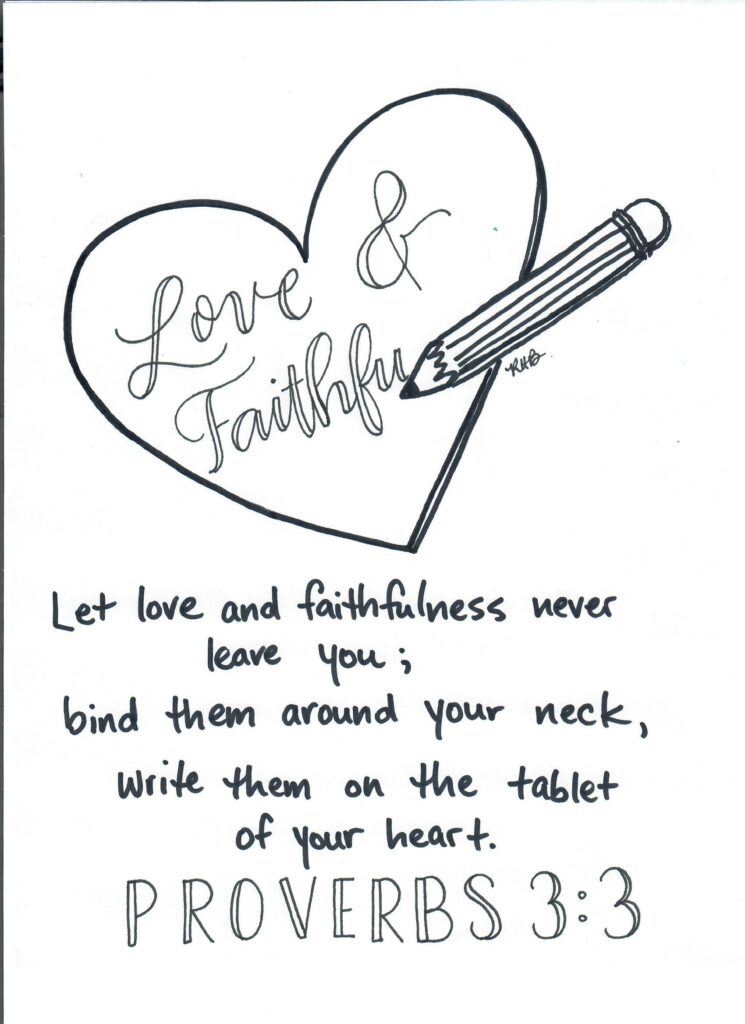 Love &
Faithfu
RHB
Let love and faithfulness never
leave you;
bind them around your neck,
write them on the tablet
of your heart.
PROVERBS 3:3